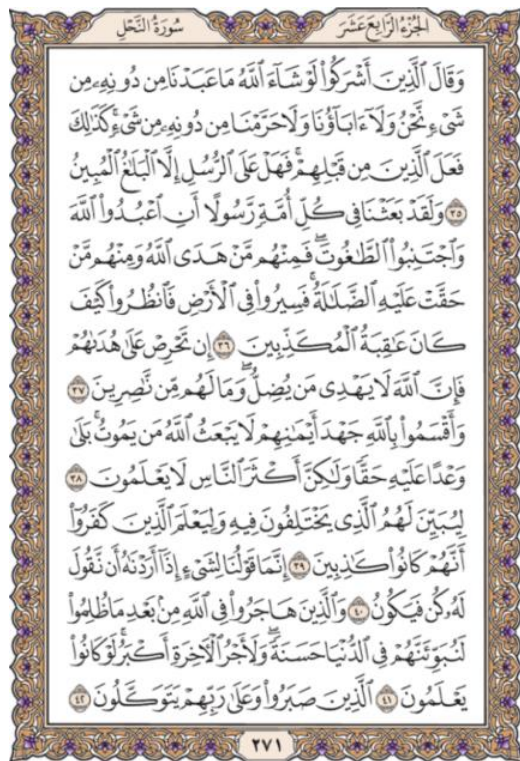 الجُزْءُ الرَّابِعَ عَشَرَ
سُورَةُ النَّحْلِ
وَقَالَ ٱلَّذِينَ أَشْرَكُوا۟ لَوْ شَآءَ ٱللَّهُ مَا عَبَدْنَا مِن دُونِهِۦ مِن
شَىْءٍ نَّحْنُ وَلَآ ءَابَآؤُنَا وَلَا حَرَّمْنَا مِن دُونِهِۦ مِن شَىْءٍ ۚ كَذَٰلِكَ
فَعَلَ ٱلَّذِينَ مِن قَبْلِهِمْ ۚ فَهَلْ عَلَى ٱلرُّسُلِ إِلَّا ٱلْبَلَٰغُ ٱلْمُبِينُ
٣٥ وَلَقَدْ بَعَثْنَا فِى كُلِّ أُمَّةٍ رَّسُولًا أَنِ ٱعْبُدُوا۟ ٱللَّهَ
وَٱجْتَنِبُوا۟ ٱلطَّٰغُوتَ ۖ فَمِنْهُم مَّنْ هَدَى ٱللَّهُ وَمِنْهُم مَّنْ
حَقَّتْ عَلَيْهِ ٱلضَّلَٰلَةُ ۚ فَسِيرُوا۟ فِى ٱلْأَرْضِ فَٱنظُرُوا۟ كَيْفَ
كَانَ عَٰقِبَةُ ٱلْمُكَذِّبِينَ ٣٦ إِن تَحْرِصْ عَلَىٰ هُدَىٰهُمْ
فَإِنَّ ٱللَّهَ لَا يَهْدِى مَن يُضِلُّ ۖ وَمَا لَهُم مِّن نَّٰصِرِينَ ٣٧
وَأَقْسَمُوا۟ بِٱللَّهِ جَهْدَ أَيْمَٰنِهِمْ ۙ لَا يَبْعَثُ ٱللَّهُ مَن يَمُوتُ ۚ بَلَىٰ
وَعْدًا عَلَيْهِ حَقًّا وَلَٰكِنَّ أَكْثَرَ ٱلنَّاسِ لَا يَعْلَمُونَ ٣٨
لِيُبَيِّنَ لَهُمُ ٱلَّذِى يَخْتَلِفُونَ فِيهِ وَلِيَعْلَمَ ٱلَّذِينَ كَفَرُوٓا۟
أَنَّهُمْ كَانُوا۟ كَٰذِبِينَ ٣٩ إِنَّمَا قَوْلُنَا لِشَىْءٍ إِذَآ أَرَدْنَٰهُ أَن نَّقُولَ
لَهُۥ كُن فَيَكُونُ ٤٠ وَٱلَّذِينَ هَاجَرُوا۟ فِى ٱللَّهِ مِنۢ بَعْدِ مَا ظُلِمُوا۟
لَنُبَوِّئَنَّهُمْ فِى ٱلدُّنْيَا حَسَنَةً ۖ وَلَأَجْرُ ٱلْءَاخِرَةِ أَكْبَرُ ۚ لَوْ كَانُوا۟
يَعْلَمُونَ ٤١ ٱلَّذِينَ صَبَرُوا۟ وَعَلَىٰ رَبِّهِمْ يَتَوَكَّلُونَ ٤٢
٢٧١